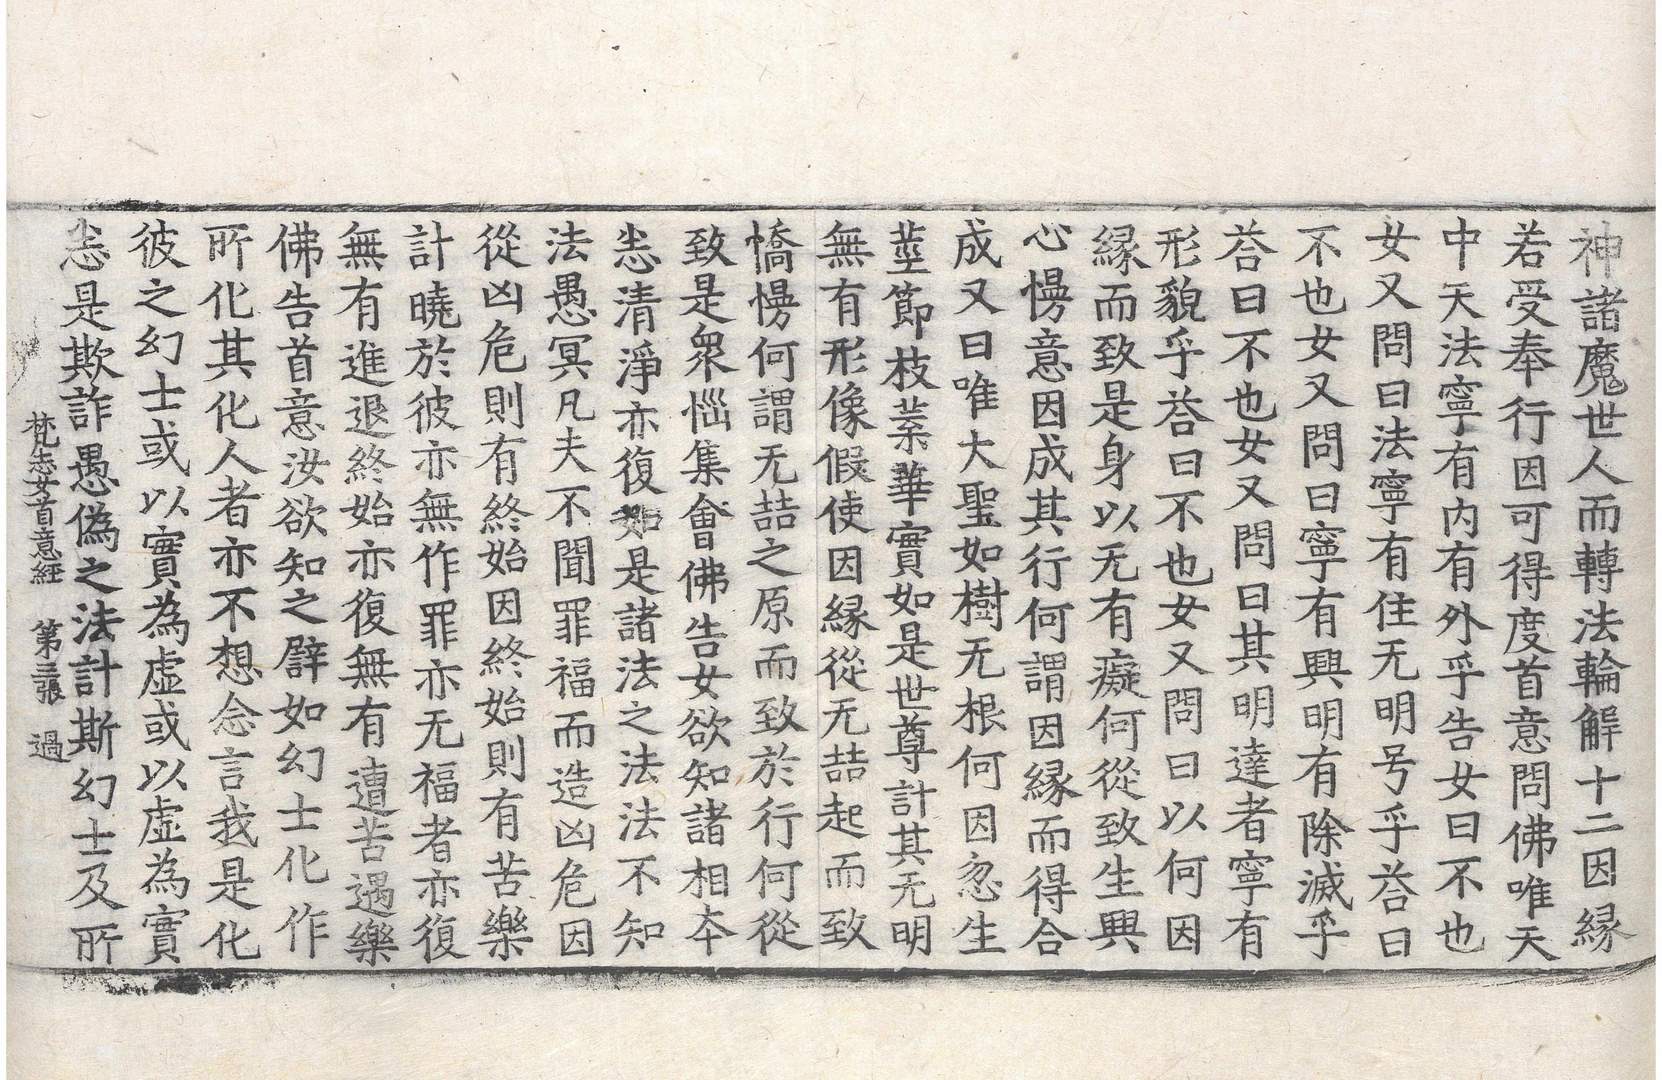 神諸魔世人而轉法輪解十二因縁
若受奉行因可得度首意問佛唯天
中天法寧有内有外乎告女曰不也
女又問曰法寧有住无明号乎荅曰
不也女又問曰寧有興明有除滅乎
荅曰不也女又問曰其明達者寧有
形貌乎荅曰不也女又問曰以何因
縁而致是身以无有癡何從致生興
心慢意因成其行何謂因縁而得合
成又曰唯大聖如樹无根何因忽生
莖節枝葉華實如是世尊計其无明
無有形像假使因縁從无喆起而致
憍慢何謂无喆之原而致於行何從
致是衆惱集會佛告女欲知諸相夲
恙清淨亦復如是諸法之法法不知
法愚冥凡夫不聞罪福而造凶危因
從凶危則有終始因終始則有苦樂
計曉於彼亦無作罪亦无福者亦復
無有進退終始亦復無有遭苦遇樂
佛告首意汝欲知之譬如幻士化作
所化其化人者亦不想念言我是化
彼之幻士或以實為虛或以虛為實
恙是欺詐愚偽之法計斯幻士及所
梵志女首意經　第三張　過